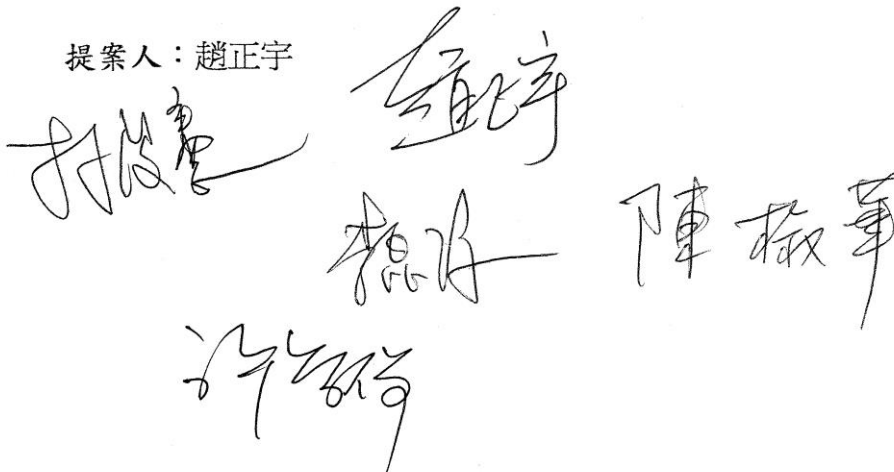 提案人：趙正宇
趙正宇
林俊憲
李昆澤 陳椒華